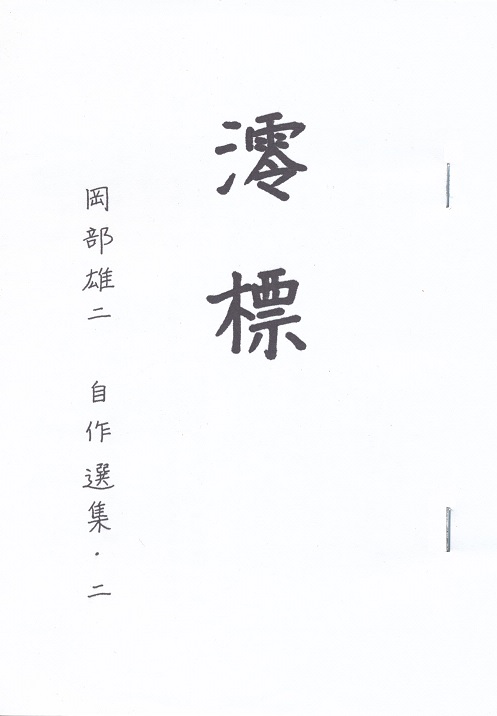 澪標
岡部雄二 自作選集・二